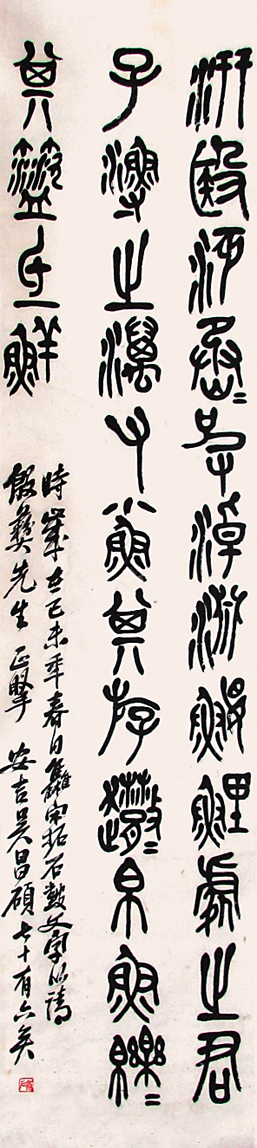 汧殹沔丞〻皮淖淵鰋鯉處之君
子漁之澫又小魚其斿趣〻帛魚皪〻
其氐鮮
時歲在己未年春日宋拓石鼓文字以請
彝先生正 安吉吳昌碩七十有六矣